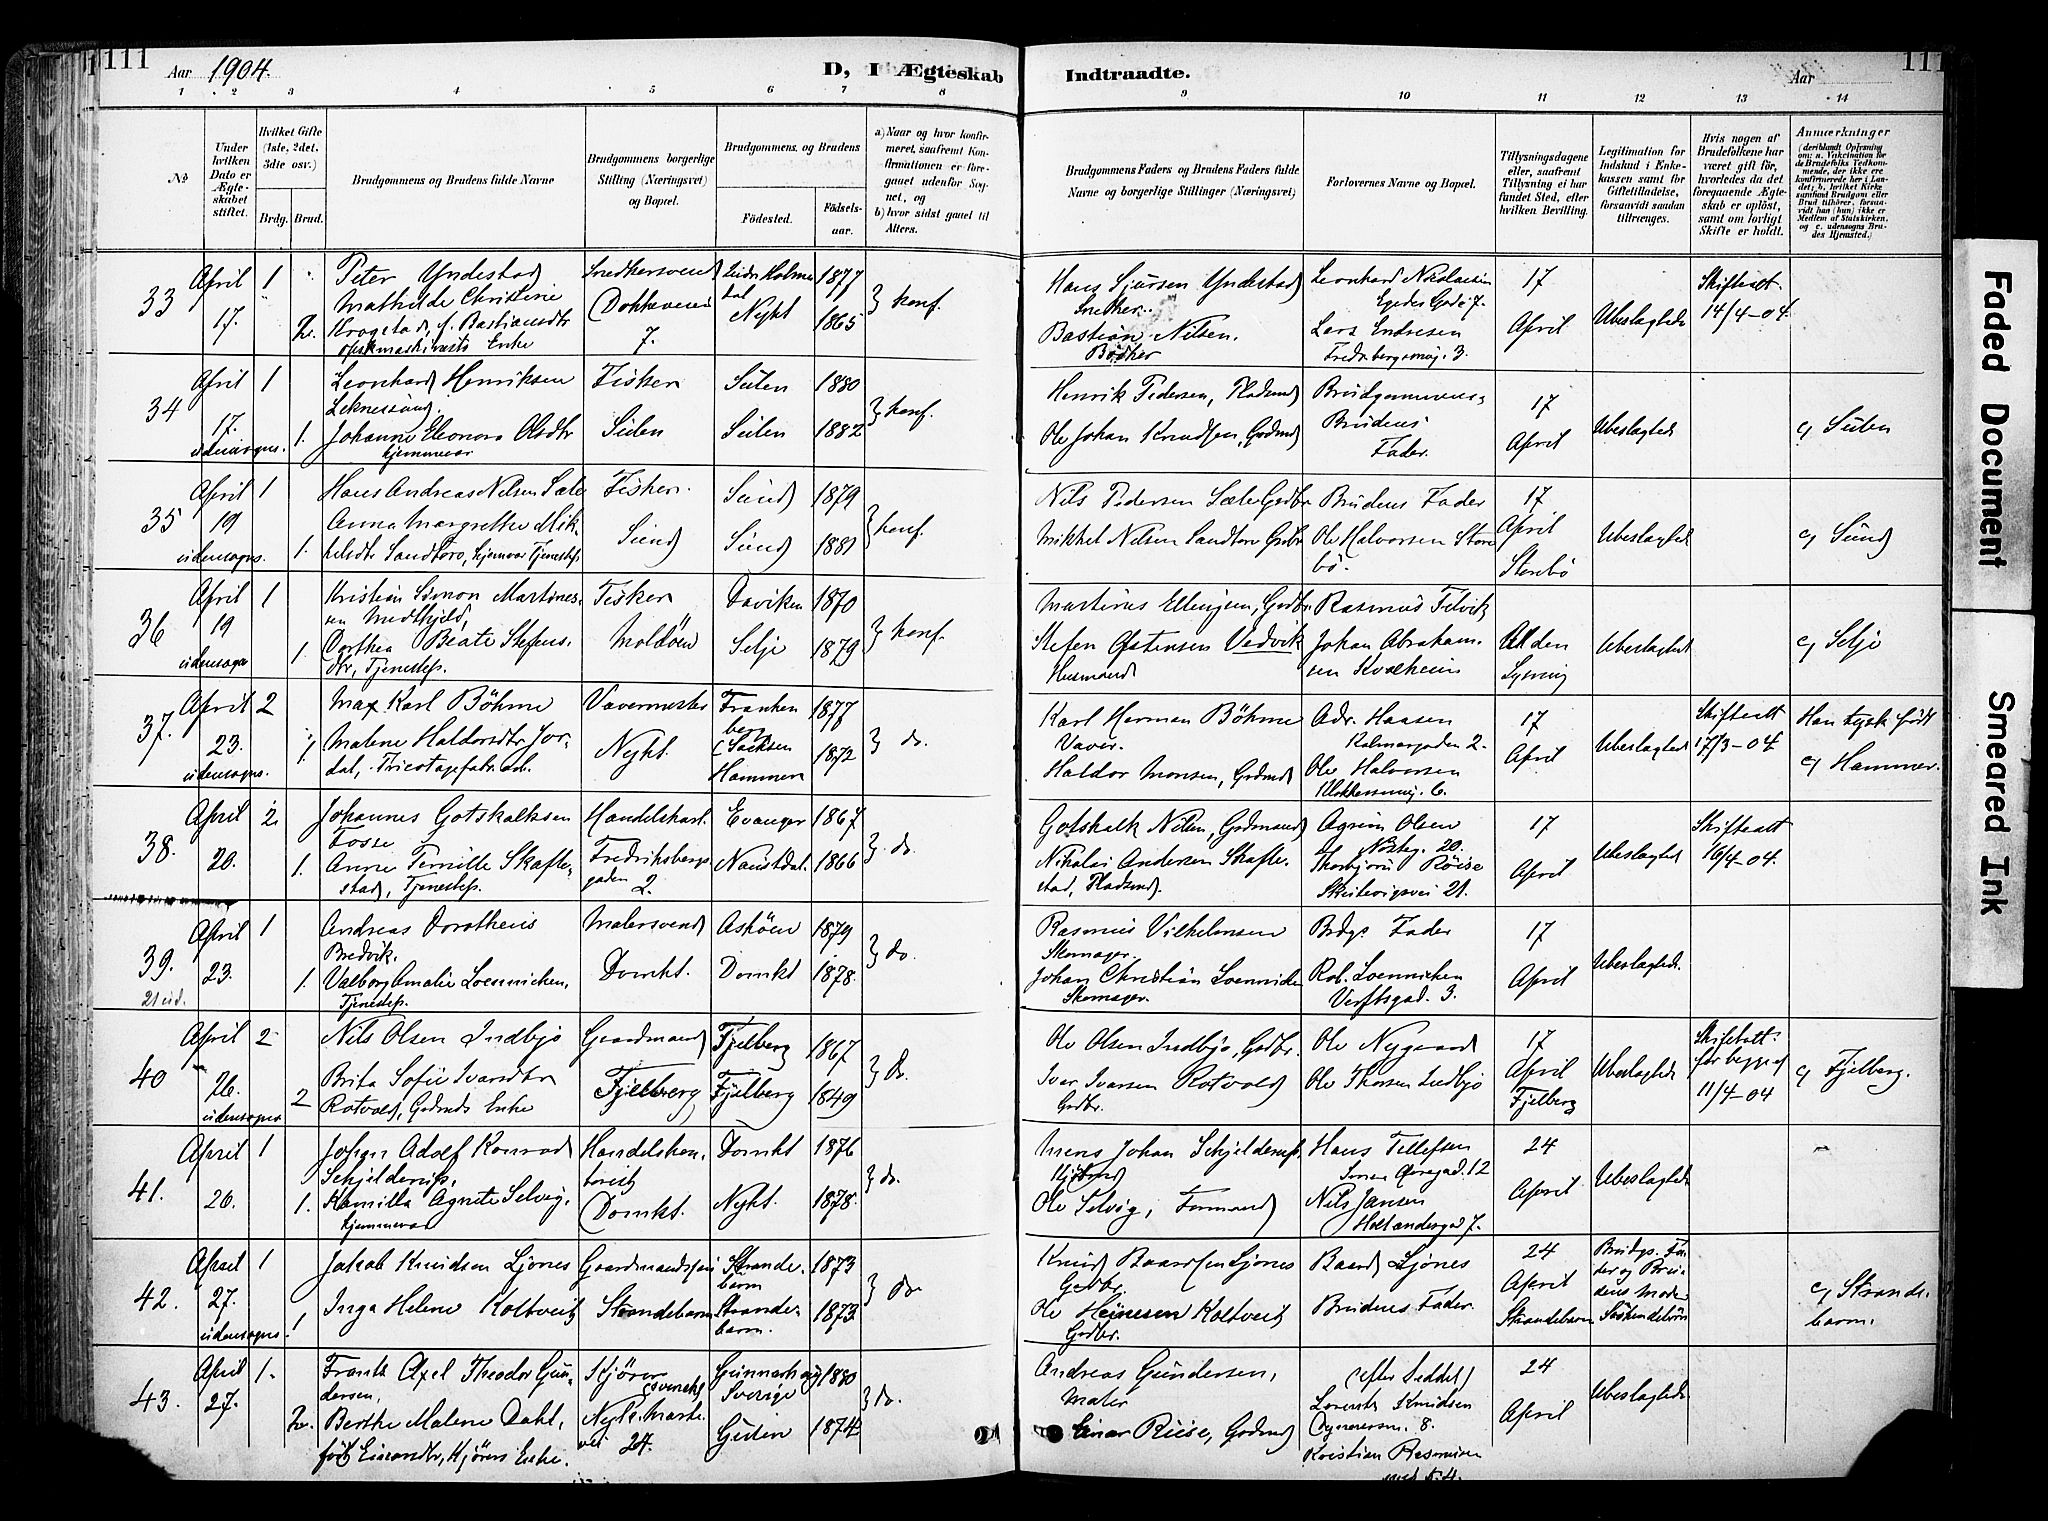 111
Aar 1904.
D, I Ægteskab
Indtraadte.
Aar
111
1 2 3 4 5 6 7 8 9 10 11 12 13 14
№
Under hvilken Dato er Ægteskabet stiftet.
Hvilket Gifte (1ste, 2det, 3dte osv.)
Brdg. Brud.
Brudgommens og Brudens fulde Navne
Brudgommens borgerlige Stilling (Næringsvei) og Bopæl.
Brudgommens og Brudens
Fødested.
Fødselsaar.
a) Naar og hvor konfirmeret, saafremt Konfirmationen er foregaaet udenfor Sognet, og
b) hvor sidst gaaet til Alters.
Brudgommens Faders og Brudens Faders fulde Navne og borgerlige Stillinger (Næringsvei)
Forlovernes Navne og Bopæl.
Tillysningsdagene eller, saafremt Tillysning ei har fundet Sted, efter hvilken Bevilling.
Legitimation for Indskud i Enkekassen samt for Giftetilladelse, forsaavidt saadan tiltrænges.
Hvis nogen af Brudefolkene har været gift før, hvorledes da det foregaaende Ægteskab er opløst, samt om lovligt Skifte er holdt.
Anmærkninger
33 April 17. 1 2.
Peter Yndestad
Mathilde Christine
Krogstad, f. Bastiansdtr
Enke
Snedkersvend
Dokkeveien
7.
Nykt
1877
1865
konf.
Hans Sjursen Yndestad
Snedker.
Bastian Nilsen.
Bødker
Leonhard Nikolaisen
Egedes Gade 7.
Lars Endresen
Fredriksbergsmug. 3.
17
April
Ubeslægted
Skifteatt.
14/4-04.
34 April 17. udensogns. 1 1.
Leonhard Henriksen
Leknessund.
Johanne Eleonora Olsdtr
hjemmevær
Fisker
Sulen
Sulen
Sulen
1880
1882
konf.
Henrik Pedersen, Pladsmd
Ole Johan Knudsen, Gaardmd
Brudgommens
Brudens
Fader.
17
April
Ubeslægted
c) Sulen
35 April 19 udensogns. 1 1.
Hans Andreas Nilsen Sæle
Anna Margrethe Mik-
kelsdtr Sandtorv, hjemvær Tjenestep.
Fisker.
Sund
Sund
Sund
1879
1881
konf.
Nils Pedersen Sæle Gdbr
Mikkel Nilsen Sandtorv Gdbr
Brudens Fader
Ole Halvorsen Store
bø.
17
April
Storebø
Ubeslægted
c) Sund
36 April 19 udensogns 1 1.
Kristian Simon Martines-
sen Midthjeld,
Dorthea Beate Stefens-
dtr, Tjenestep.
Fisker
Moldøen
Daviken
Selje
1870
1879
konf.
Martinus Ellingsen, Gdbr.
Stefen Østensen Vedvik
Husmand
Rasmus Felvik
Johan Abraham-
sen Kvalheim
Uden
Lysning
Ubeslægted
c) Selje
37. April 23. udensogns. 2 1.
Max Karl Böhme
Malene Haldorsdtr Jor-
dal, Tricotagefabr.arb.
Vævermester
Nykt.
Franken
berg
(Sachsen
Hammer
1877
1872
do.
Karl Herman Böhme
Væver.
Haldor Monsen, Gaardmd
Adr. Haasen
Kalmargaden 2.
Ole Halvorsen
Klokkersmug. 6.
17
April
Ubeslægted
Skifteatt
17/3-04.
Han tysk født
c) Hammer.
38. April 20. 2. 1.
Johannes Gotskalksen
Fosse
Anne Pernille Skafte-
stad, Tjenestep.
Handelskarl.
Fredriksbergs-
gaden
2.
Evanger
Naustdal.
1867
1866
do.
Gotskalk Nilsen, Gaardmand
Nikolai Andersen Skafte-
stad, Pladsmd.
Agrim Olsen
Nøsteg. 20.
Thorbjørn Røise
Skuteviksvei 21.
17
April
Ubeslægted
Skifteatt
16/4-04.
39. April 23. 1 1.
Andreas Dorotheus
Bredvik.
Valborg Amalie Loennichen,
Tjenestep.
Malersvend
Domkt.
Askøen
Domkt
1879
1878.
do.
Rasmus Vilhelmsen
Skomager.
Johan Christian Loennichen
Skomager.
Brdgs Fader
Rob. Loennichen
Verftsgad. 3.
17
April
Ubeslægted.
40 April 26. udensogns 2 2
Nils Olsen Indbjo
Brita Sofie Ivarsdtr
Rotvold, Gaardmds Enke
Gaardmand
Fjelberg
Fjelberg
Fjelberg
1867
1849
do.
Ole Olsen Indbjo, Gdbr.
Iver Ivarsen Rotvold
Gdbr.
Ole Nygaard
Ole Thorsen Indbjo
17
April
Fjelberg
Ubeslægted
Skifteatt.
for begge af
11/4-04
c) Fjelberg.
41. April 26. 1 1.
Johan Adolf Konrad
Schjelderup,
Kamilla Agnete Selvig,
hjemmevær
Handelskon-
torist
Domkt.
Domkt
Nykt.
1876
1878.
do.
Mens Johan Schjelderup,
Kjøbmd
Ole Selvig, Formand
Hans Tellefsen
12
Nils Jansen
Hollændergad 7.
24
April
Ubeslægted
42. April 27. udensogns. 1 1
Jakob Knudsen Ljones
Inga Helene Koltveit
Gaardmandssøn
Strandebarm
Strande-
barm
Strande-
barm.
1873
1873
do
Knud Baardsen Ljones
Gdbr.
Ole Heinesen Koltveit
Gdbr.
Baard Ljones
Brudens Fader.
24
April
Strandebarm
Brudgs. Fa-
der og Bru-
dens Moder
Søskendebørn
c) Strande-
barm.
43. April 27. 1. 2.
Frantz Axel Theodor Gun-
dersen,
Berthe Malene Dahl,
født Einarsdtr, Kjørers Enke.
Kjører
(svensk)
Nykt.
24.
Sverige
Gulen
1880
1874
do.
Andreas Gundersen,
Maler
Einar Riise, Gaardmd
(efter Seddel)
Lorentz Knudsen
8.
Kristian Rasmussen
24
April
Ubeslægted
Faded Document
Smeared Ink